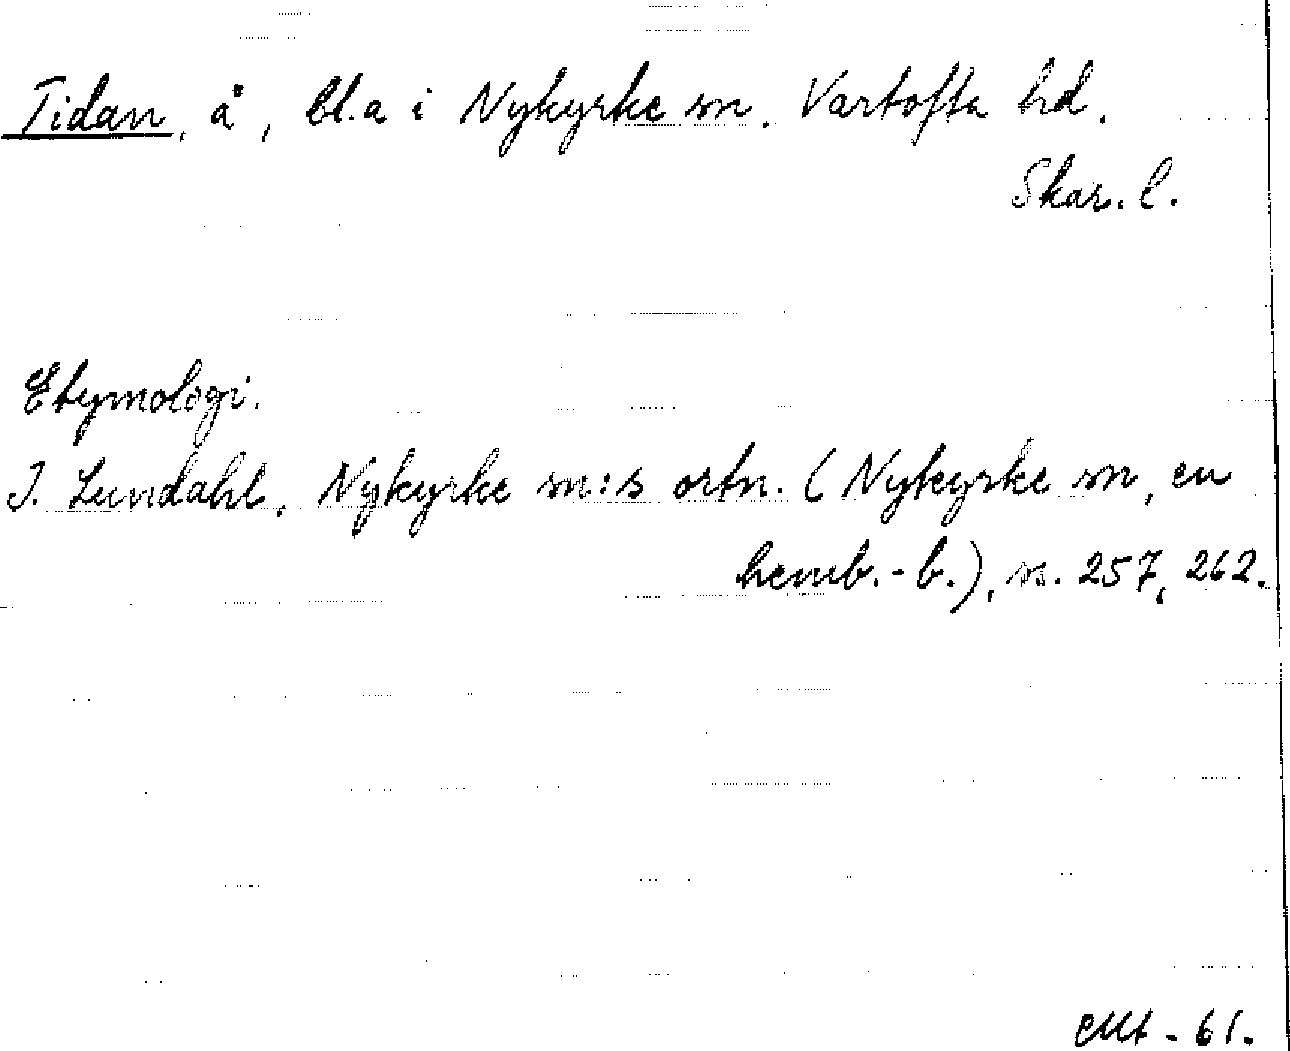 Tidan, å, bl.a i Nykyrke sn. Vartofta hd.
Skar. l.
Etymologi.
I. Lundahl, Nykyrke sn:s ortn. (Nykyrke sn, en
hemb.-b.), s. 257, 262.
-61.